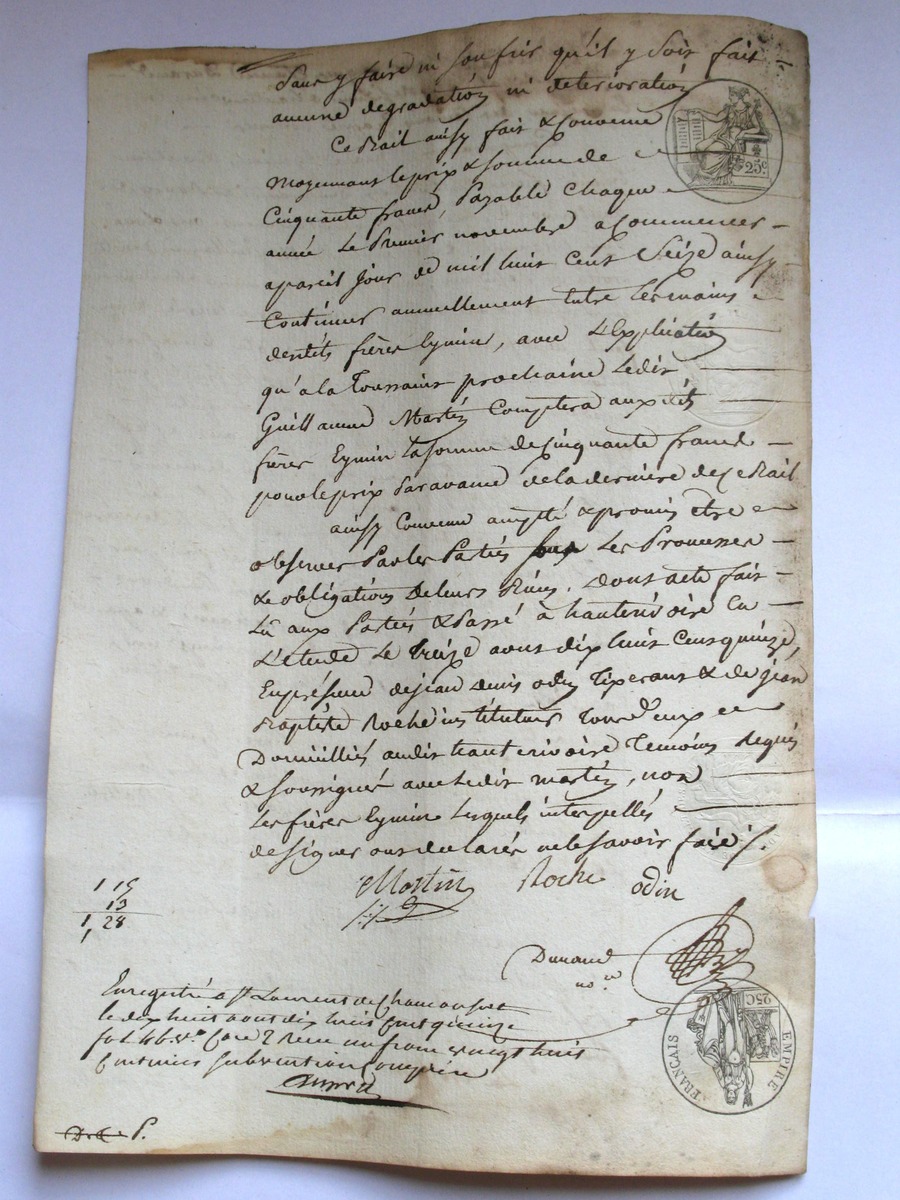 Sans y faire ni souffrir qu'il y soit fait
aucune degradation ni deterioration
Ce Bail ainsy fait & Convenu
Moyennant le prix & somme de
Cinquante francs, Payable Chaque
année Le Premier novembre a Commencer
apareil Jour de mil huit Cent Seize ainsy
Continuer annuellement entre Les mains
desdits frères Eymin, avec L'Explication
qu'a la Toussaint prochaine Ledit
Guillaume Martin Comptera auxdits
frères Eymin la somme de Cinquante francs
pour le prix Paravance de la derniere de Ce Bail
ainsy Convenu & promis etre
observer Par les Parties Les Promesses
& obligations De leurs Biens. Dont acte fait
Lû aux Parties & Passé à hauterivoire En
L'étude Le treize aout dix huit Cent quinze,
En présence de jean denis odin Tixerant & de jean
Baptiste Roche instituteur Tous deux
Domiciliés audit hauterivoire Temoins Requis
& soussignés avec Ledit Martin, non
Les frères Eymin Lesquels interpellés
de signer ont declarés ne le savoir faire /.
Martin Roche odin
Durand
no.re
1 15
13
1, 28
Enregistré a St Laurent de Chamousset
le dix huit aout dix huit Cent quinze
fol. 46 v.o Case 2 Reçu un franc vingt huit
Centimes Subvention Comprise
P.
25c.
EMPIRE
FRANÇAIS
25C